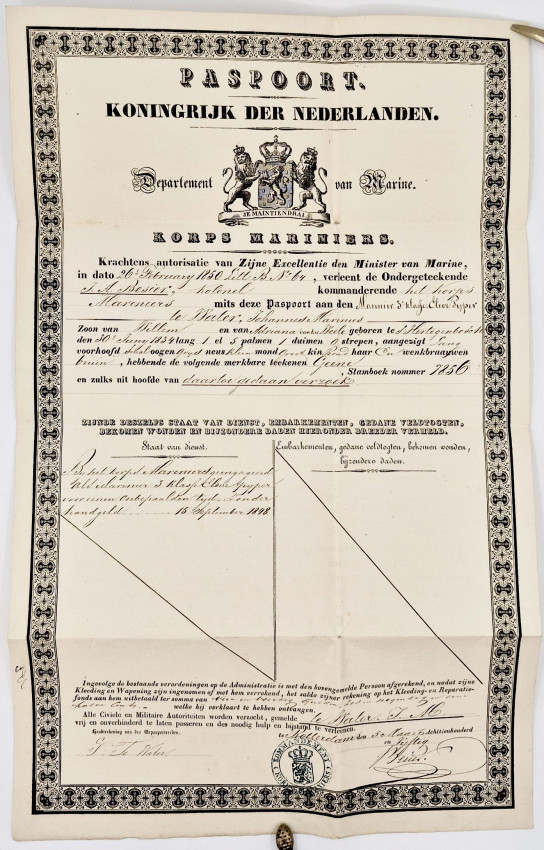 PASPOORT.
KONINGRIJK DER NEDERLANDEN.
Departement van Marine.
JE MAINTIENDRAI
KORPS MARINIERS.
Krachtens autorisatie van Zijne Excellentie den Minister van Marine,
in dato 26n February 1850 Litt B. No 64, verleent de Ondergeteekende
J. A. Besier, kolonel kommanderende het korps
Mariniers mits deze Paspoort aan den Marinier 3e klasse Eleve Pyper
te Water, Johannes Marinus
Zoon van Willem en van Adriana Weele geboren te S Hertogenbosch
den 30n Juny 1834 lang 1 el 5 palmen 1 duimen 0 strepen, aangezigt Lang
voorhoofd oogen neus Klein mond Groot kin Rond haar En wenkbraauwen
bruin, hebbende de volgende merkbare teekenen Geene
Stamboek nommer 7856
en zulks uit hoofde van daartoe gedaan verzoek
ZIJNDE DESZELFS STAAT VAN DIENST, EMBARKEMENTEN, GEDANE VELDTOGTEN,
BEKOMEN WONDEN EN BIJZONDERE DADEN HIERONDER BREEDER VERMELD.
Staat van dienst.
Embarkementen, gedane veldtogten, bekomen wonden,
bijzondere daden.
Bij het korps Mariniers geengageerd
als Marinier 3 klasse Eleve Pyper
voor eenen onbepaalden tijd zonder
handgeld 15 September 1848
Ingevolge de bestaande verordeningen op de Administratie is met den bovengemelde Persoon afgerekend, en nadat zijne
Kleeding en Wapening zijn ingenomen of met hem verrekend, het saldo zijner rekening op het Kleeding- en Reparatie-
fonds aan hem uitbetaald ter somma van
welke hij verklaart te hebben ontvangen.
Alle Civiele en Militaire Autoriteiten worden verzocht, gemelde te Water J. M.
vrij en onverhinderd te laten passeren en des noodig hulp en bijstand te verleenen.
Handteekening van den Gepasporteerden.
Rotterdam den 5 Maart Achttienhonderd
en Vijftig
Besier
Te Water